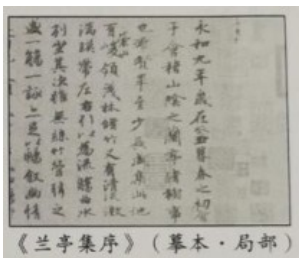 永和九年歲在癸丑暮春之初會
于會稽山陰之蘭亭脩稧事
也群賢畢至少長咸集此地
有崇山峻領茂林脩竹又有清流激
湍暎帶左右引以為流觴曲水
列坐其次雖無絲竹管弦之
盛一觴一詠亦足以暢敘幽情
《兰亭集序》（摹本·局部）